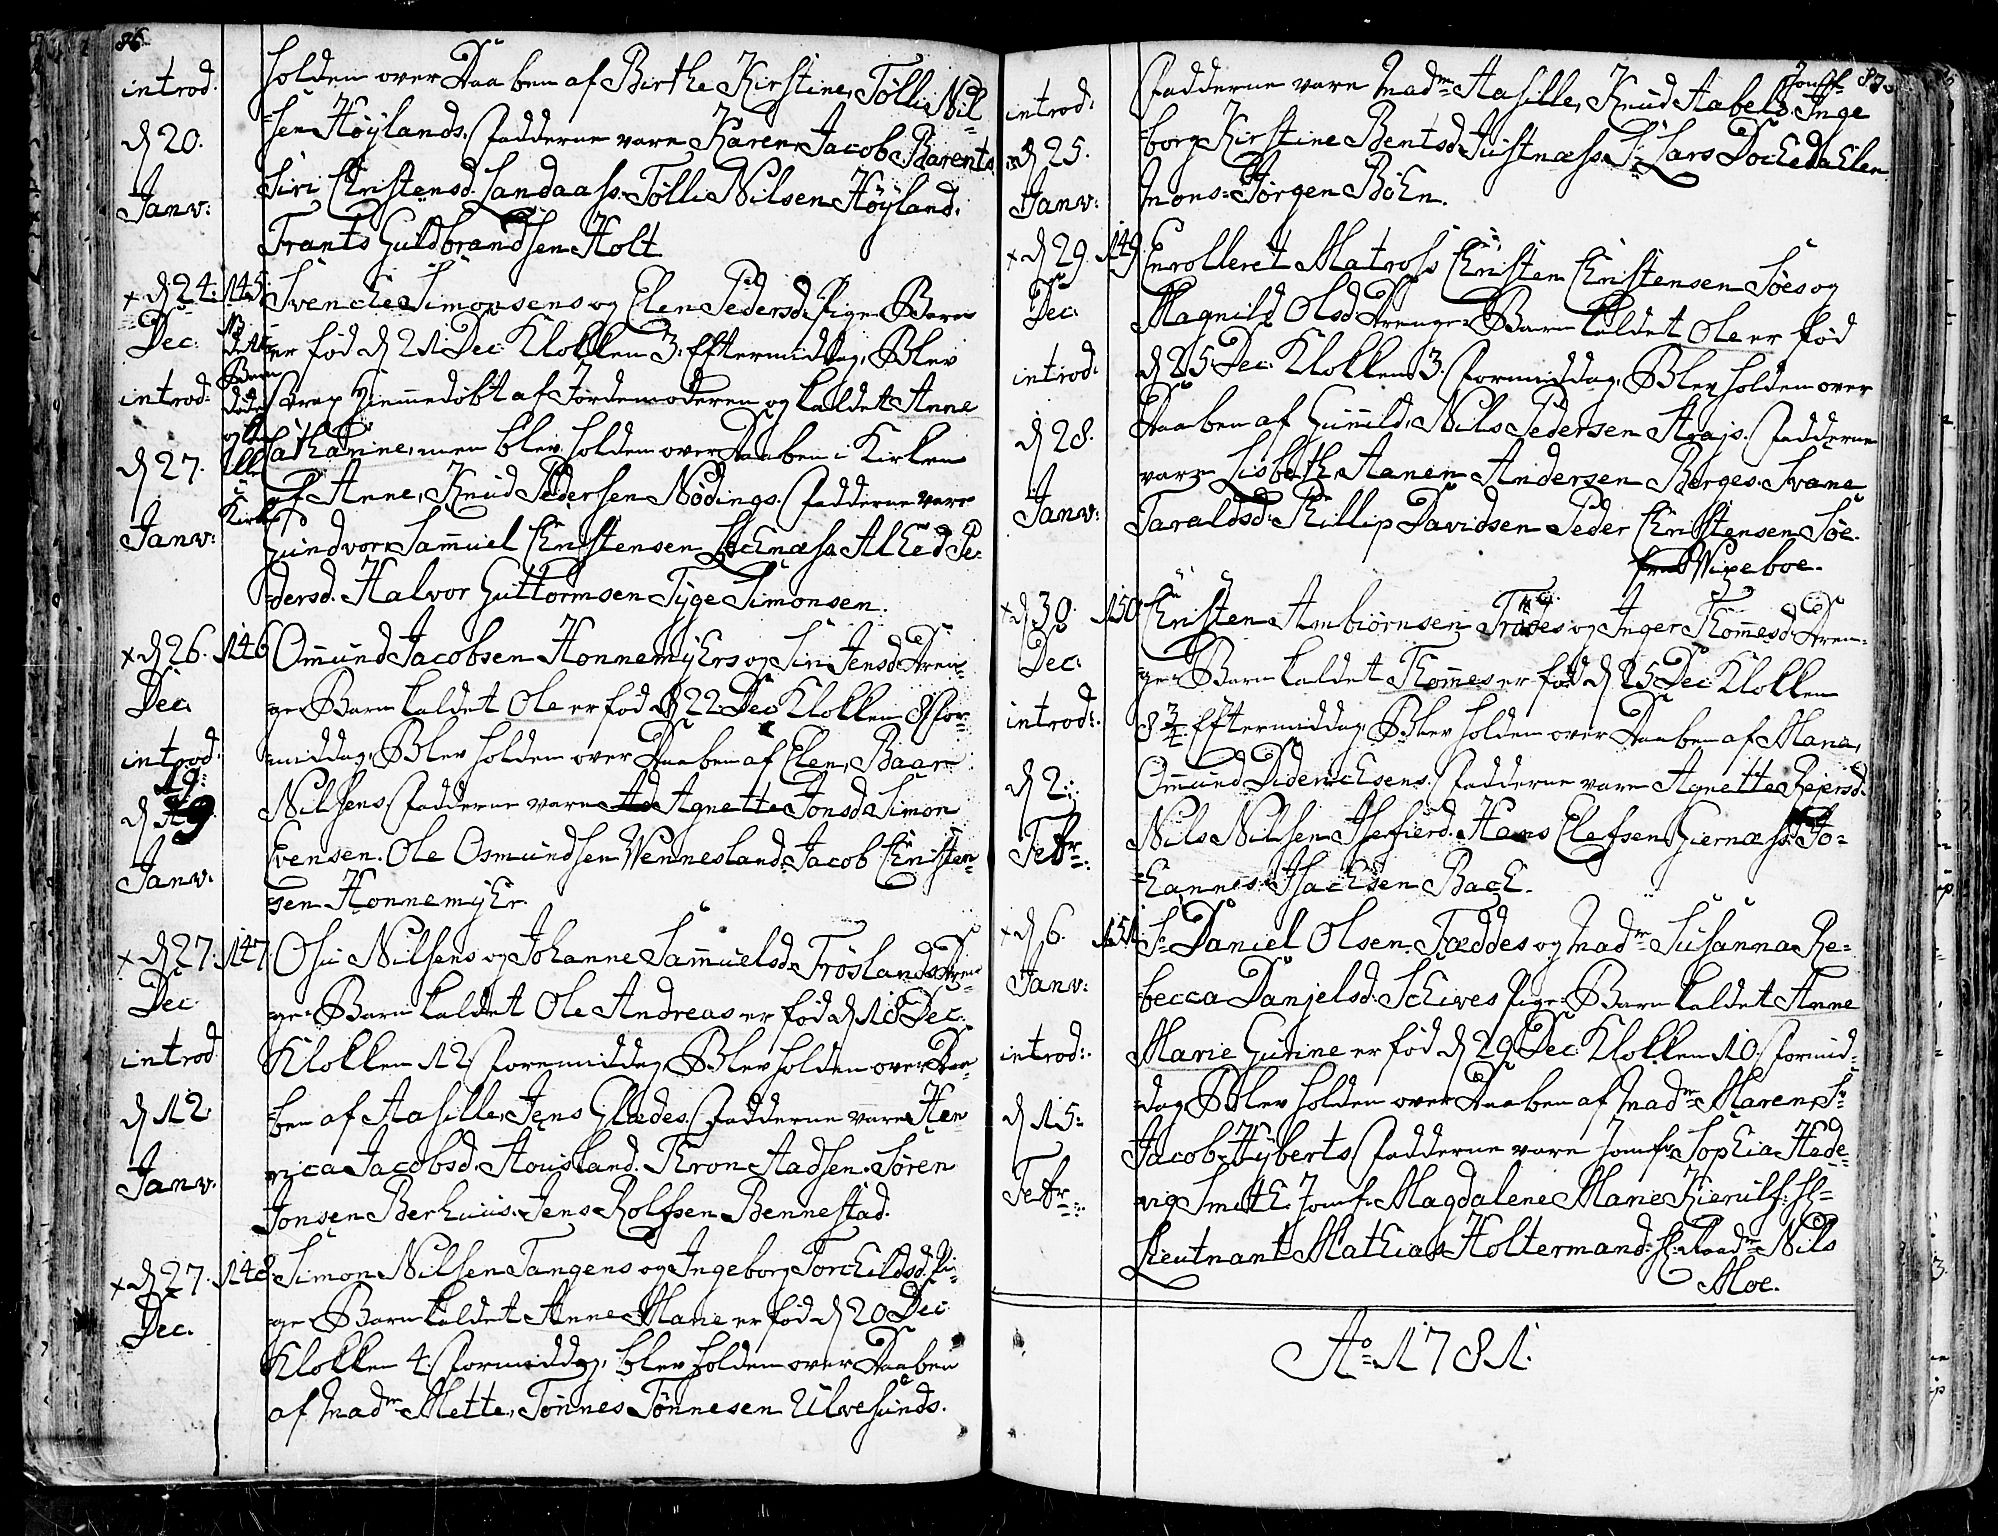 86.
introd:
d 20.
Janv:
holden over Daaben af Birthe Kirstine, Tølli Nil
=sen Høylands. Fadderne vare Karen Jacob Barents
Siri Christensd. Landaass. Tølli Nilsen Høyland.
Frants Guldbrandsen Holt
x d 24. 145.
Dec.
introd:
d 27.
Janv:
NB
dette
Barn
døde
Kirke
Svenche Simonsens og Elen Pedersd. Pige-Barn
er fød d 21 Dec. Klokken 3. Eftermiddag, Blev
strax hiemmedøbt af Jordemoderen og kaldet Anne
Cathanine, men blev holden over Daaben i Kirken
af Anne, Knud Pedersen Nødings. Fadderne vare
Gundvor Samuel Christensen Alhed Pe-
=dersd. Halvor Guttormsen Tyge Simonsen.
x d 26. 146
Dec.
introd:
d 19
Janv:
Omund Jacobsen Honnemyhrs og Siri Jensd. Dren-
ge-Barn kaldet Ole er fød d 22 Dec. Klokken 8 for-
middag, Blev holden over Daaben af Elen, Baar
Nilsens. Fadderne vare Agnette Jonsd. Simon
Evensen. Ole Osmundsen Wennesland. Jacob Christen-
sen Honnemyhr.
x d 27. 147.
Dec
introd
d 12
Janv:
Osu Nilsens og Johanne Samuelsd. Trøslands Dren-
ge-Barn kaldet Ole Andreas er fød d 18 Dec.
Klokken 12. Foremiddag, Blev holden over Daa-
=ben af Aasille, Jens Glædes. Fadderne vare Hen
rica Jacobsd. Housland. Thron Aadsen. Søren
Jonsen Berhuus. Jens Rolfsen Bennestad.
x d 27. 148
Dec.
Simon Nilsen Tangens og Ingeborg Torchildsd. Pi-
ge-Barn kaldet Anne Marie er fød d 20 Dec
Klokken 4. Formiddag, blev holden over Daaben
af Madm Mette, Tønnes Tønnesen Ulvesunds.
87.
introd:
d 25.
Janv:
Fadderne vare Madm Aasille, Knud Aabels. Jomf. Inge
=borg Kirstine Bentsd. Justnæss. Sr Lars
Mons: Jørgen Böhn.
x d 29. 149.
Dec
introd:
d 28.
Janv:
Enrolleret Matross Christen Christensen Søes og
Magnild Olsd. Drenge-Barn kaldet Ole er fød
d 25 Dec. Klokken 3. Formiddag, Blev holden over
Daaben af Gunild, Nils Pedersen Krajs. Fadderne
vare Lisbeth, Aanen Andersen Berges. Svane
Taraldsd. Phillip Davidsen Peder Christensen Søe.
Wigeboe.
x d 30. 150
Dec.
introd:
d 2.
Febr:
Christen Ambiörnsen og Inger Thommesd. Dren-
ge-Barn kaldet Thomes er fød d 25 Dec Klokken
8 3/4 Eftermiddag, Blev holden over Daaben af Maria,
Omund Diderichsens. Fadderne vare Agnette Rejersd.
Nils Nilsen Aasefierd. Hans Elefsen Giernæss. Jo-
=hannes Isachsen Bach.
x d 6. 151.
Janv:
introd:
d 15.
Febr:
Sr Daniel Olsen Fæddes og Madm Susanna Re-
=becca Danjelsd. Schives Pige-Barn kaldet Anne
Marie Gurine er fød d 29 Dec Klokken 10. Formid-
=dag, Blev holden over Daaben af Madm Maren, Sr
Jacob Hyberts. Fadderne vare Jomfr Sophia Hede-
vig Smith. Jomf. Magdalene Marie Kierulf. Hr
Lieutnant Mathias Holtermand. Hr. Nils
Moe.
Ao 1781.